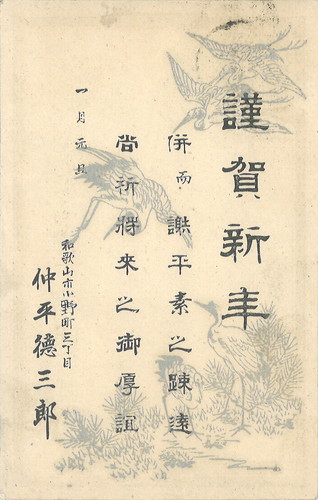 謹賀新年
併而謝平素之疎遠
尚祈將來之御厚誼
一月元旦
和歌山市小野町三丁目
仲平德三郎